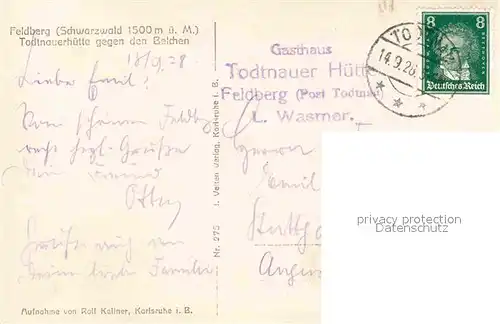 Feldberg (Schwarzwald 1500 m ü. M.)
Todtnauerhütte gegen den Belchen
Liebe Emil!
Vom schönen Feldberg
recht herzl. Grüsse
Dein Freund
Otto
Grüße auch an
Deine liebe Familie
Aufnahme von Rolf Kellner, Karlsruhe i. B.
Nr. 275 J. Velten Verlag, Karlsruhe i. B.
Gasthaus
Todtnauer Hütte
Feldberg (Post Todtnau)
L. Wasmer.
TO
14.9.28.
8 8
Deutsches Reich
Herrn
Emil
Stuttgart
privacy protection
Datenschutz